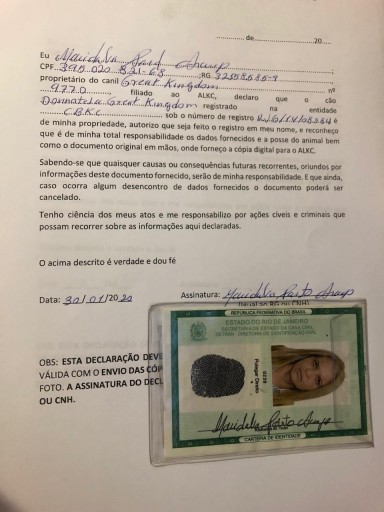 .................. de.................................20.....
Eu Maridelva Porto Araujo
CPF ;RG
proprietário do canil Great Kingdom nº
9770 filiado ao ALKC, declaro que o cão
Donnatela Great Kingdom registrado na entidade
CBKC sob o número de registro é
de minha propriedade, autorizo que seja feito o registro em meu nome, e reconheço
que é de minha total responsabilidade os dados fornecidos e a posse do animal bem
como o documento original em mãos, onde forneço a cópia digital para o ALKC.
Sabendo-se que quaisquer causas ou consequências futuras recorrentes, oriundos por
informações deste documento fornecido, serão de minha responsabilidade. E que ainda,
caso ocorra algum desencontro de dados fornecidos o documento poderá ser
cancelado.
Tenho ciência dos meus atos e me responsabilizo por ações cíveis e criminais que
possam recorrer sobre as informações aqui declaradas.
O acima descrito é verdade e dou fé
Data: 30/01/2020 Assinatura: Maridelva Porto Araujo
(igual ao RG ou CNH)
OBS: ESTA DECLARAÇÃO DEVE
VÁLIDA COM O ENVIO DAS CÓP
FOTO. A ASSINATURA DO DECL
OU CNH.
REPÚBLICA FEDERATIVA DO BRASIL
ESTADO DO RIO DE JANEIRO
SECRETARIA DE ESTADO DA CASA CIVIL
DETRAN - DIRETORIA DE IDENTIFICAÇÃO CIVIL
Polegar Direito
Maridelva Porto Araujo
CARTEIRA DE IDENTIDADE